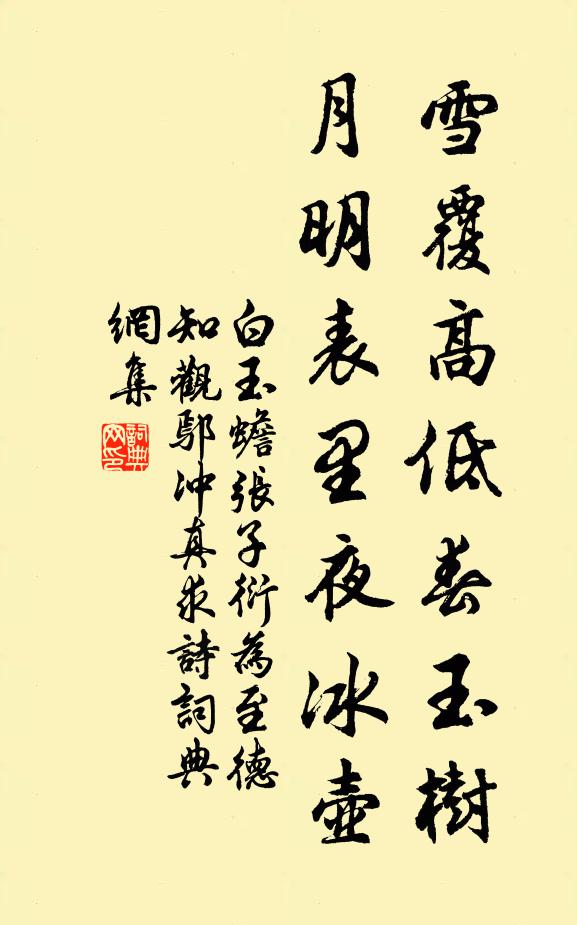 雪覆高低春玉樹
月明表里夜冰壺
白玉蟾張子衍為至德
知觀鄔冲真求詩詞典
網集
詞典網印